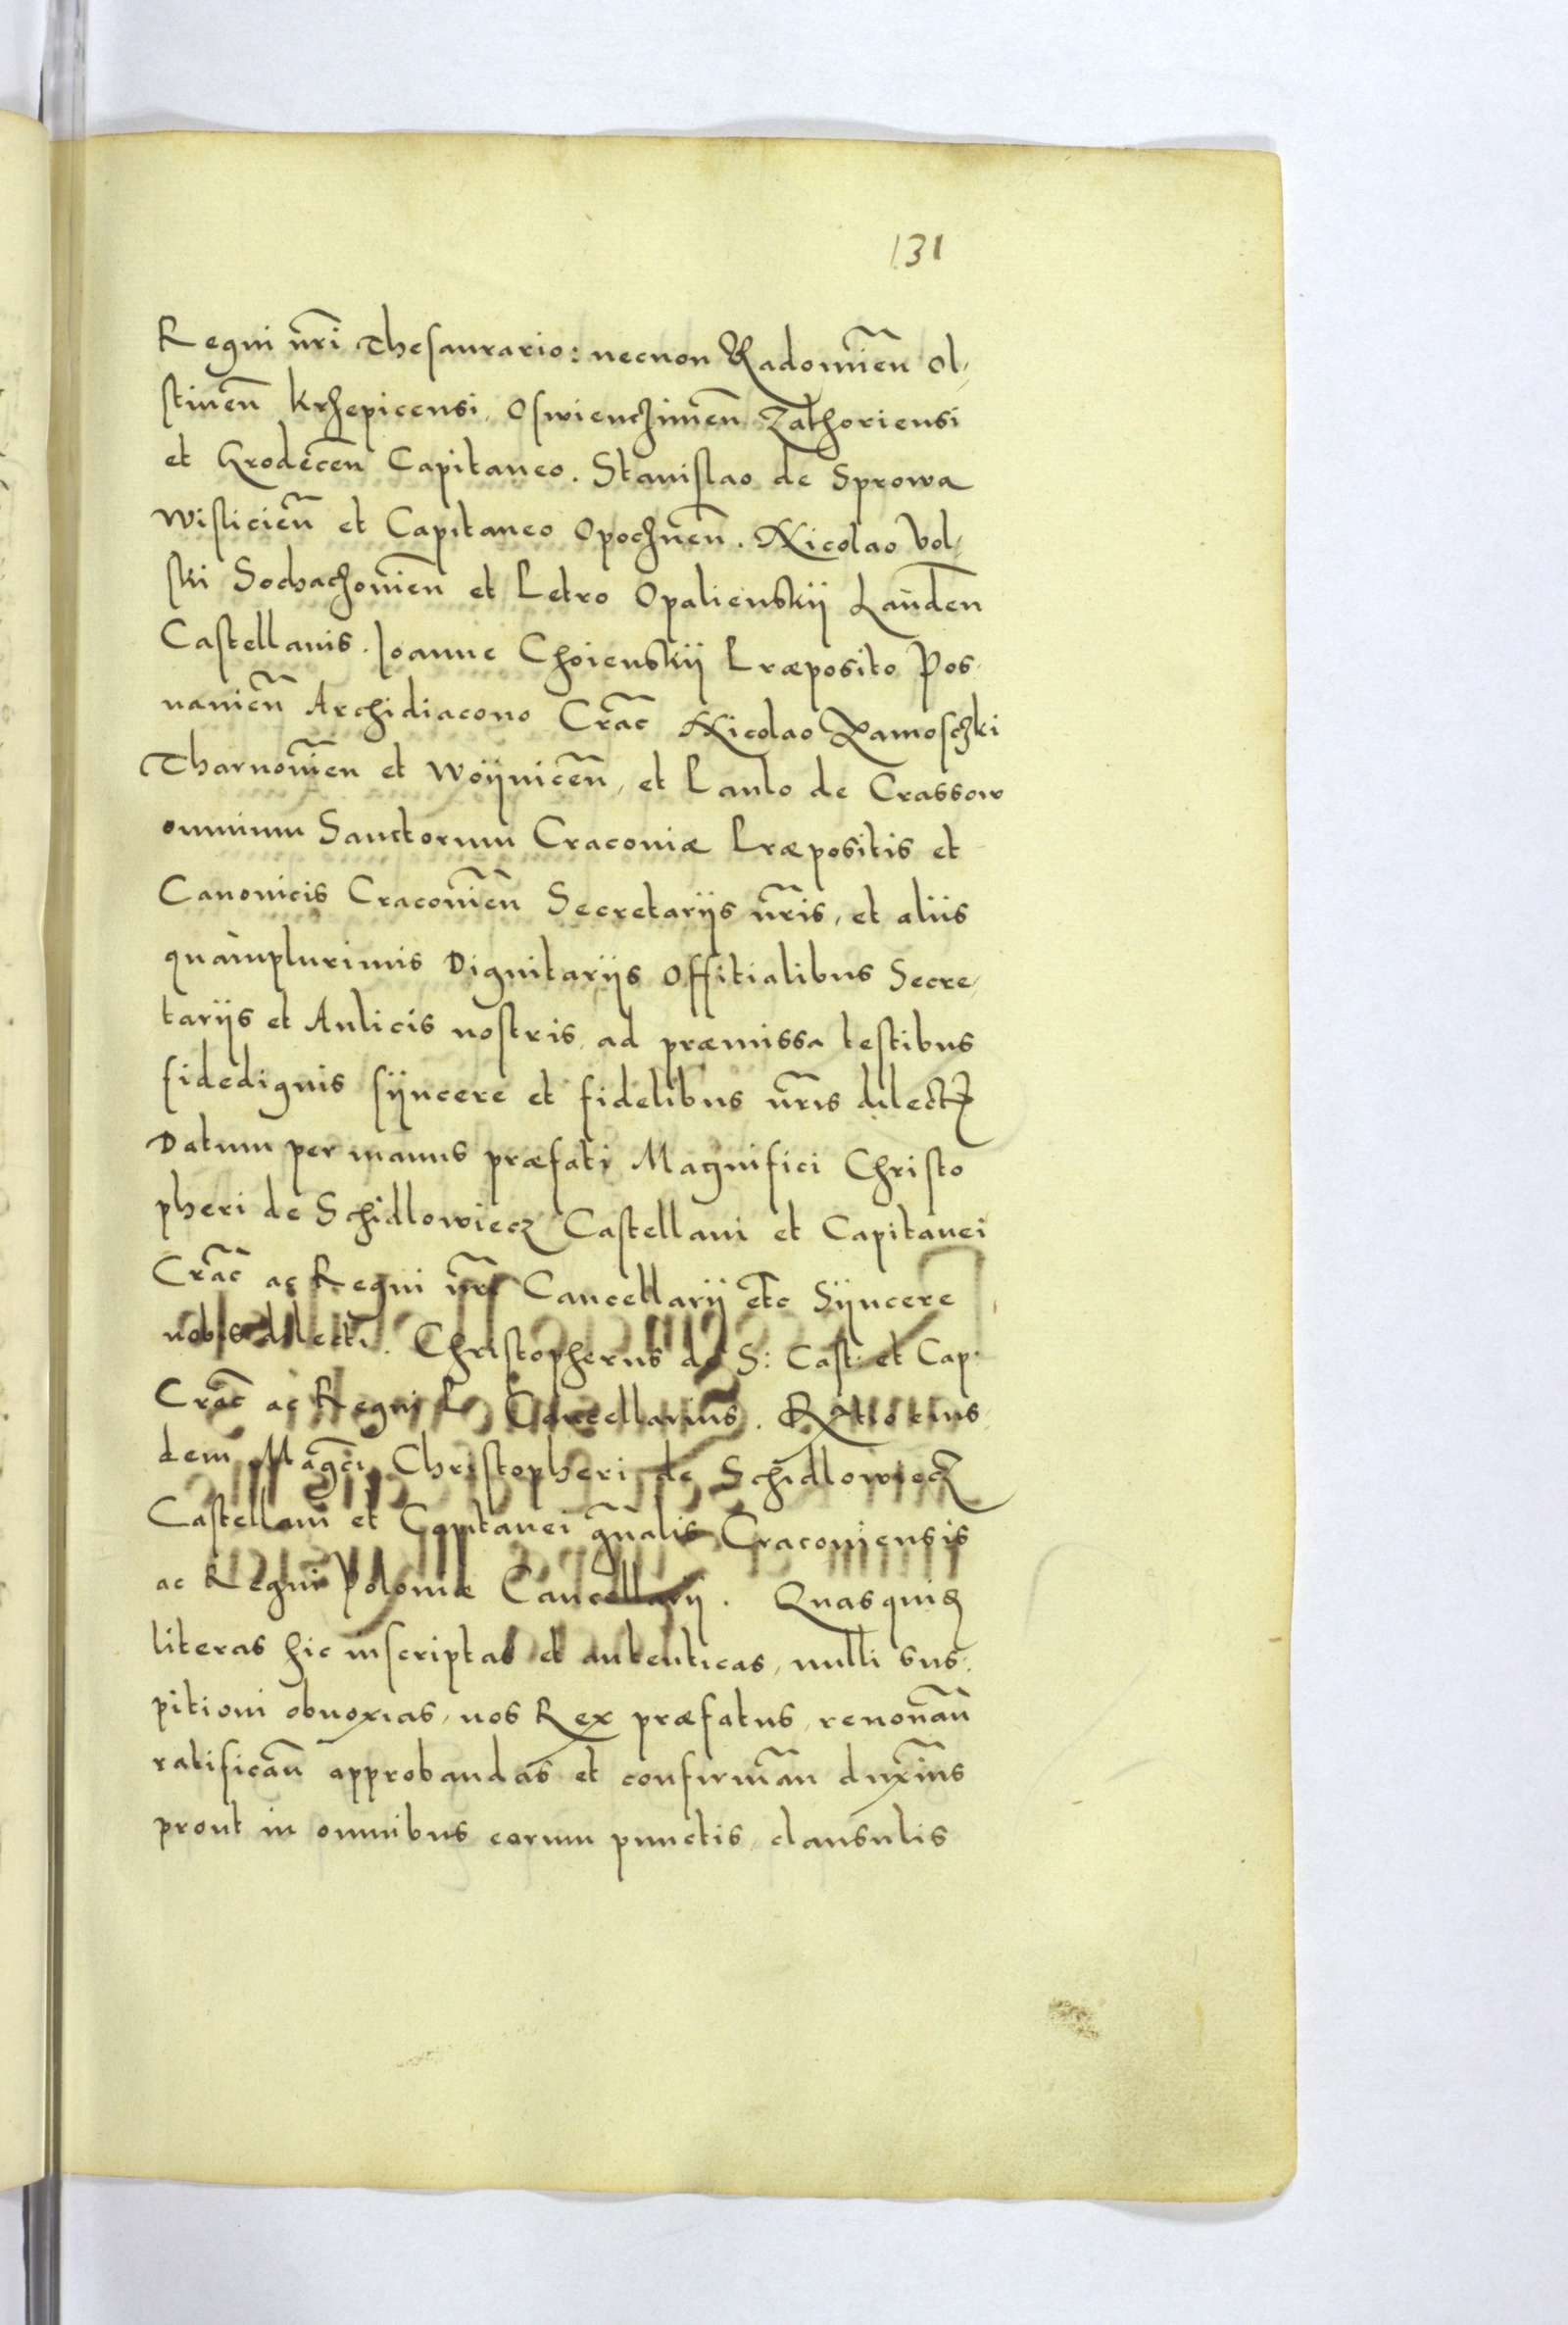 131
Regni nr̄i Thesaurario: necnon Radomień Ol-
stineñ Krzepicensi, Oswienczimeñ Zathoriensi
et Grodeceñ Capitaneo. Stanislao de Sprowa
Wislicieñ et Capitaneo Opoczneñ. Nicolao Vol-
ski Sochaczovieñ et Petro Opalienskÿ Landeñ
Castellanis. Joanne Choienskÿ Præposito Pos-
nanieñ Archidiacono Crac̄ Nicolao Zamosczki
Tharnovieñ et Woÿniceñ, et Paulo de Crassow
omnium Sanctorum Cracoviæ Præpositis et
Canonicis Cracovieñ Secretarijs nr̄is, et alijs
quàmplurimis Dignitarijs Offitialibus Secre-
tarijs et Aulicis nostris, ad præmissa testibus
fidedignis sÿncere et fidelibus nr̄is dilectꝭ
Datum per manus præfati Magnifici Christo
pheri de Schidlowiecz Castellani et Capitanei
Crac̄ ac Regni nr̄i Cancellarij etc̄ Sÿncere
nobis dilecti. Christopherus de S: Cast: et Cap:
Crac̄ ac Regni P. Cancellarius. Rĺtio eius-
dem Magc̄i Christopheri de Schidlowiecz
Castellani et Capitanei gn̄alis Cracoviensis
ac Regni Poloniæ Cancellarij. Quasquidꝫ
literas hic inscriptas et autenticas, nulli sus-
pitioni obnoxias, nos Rex præfatus, renovan̄
ratifican̄ approbandas et confirman̄ duxim̄us
prout in omnibus earum punctis, clausulis